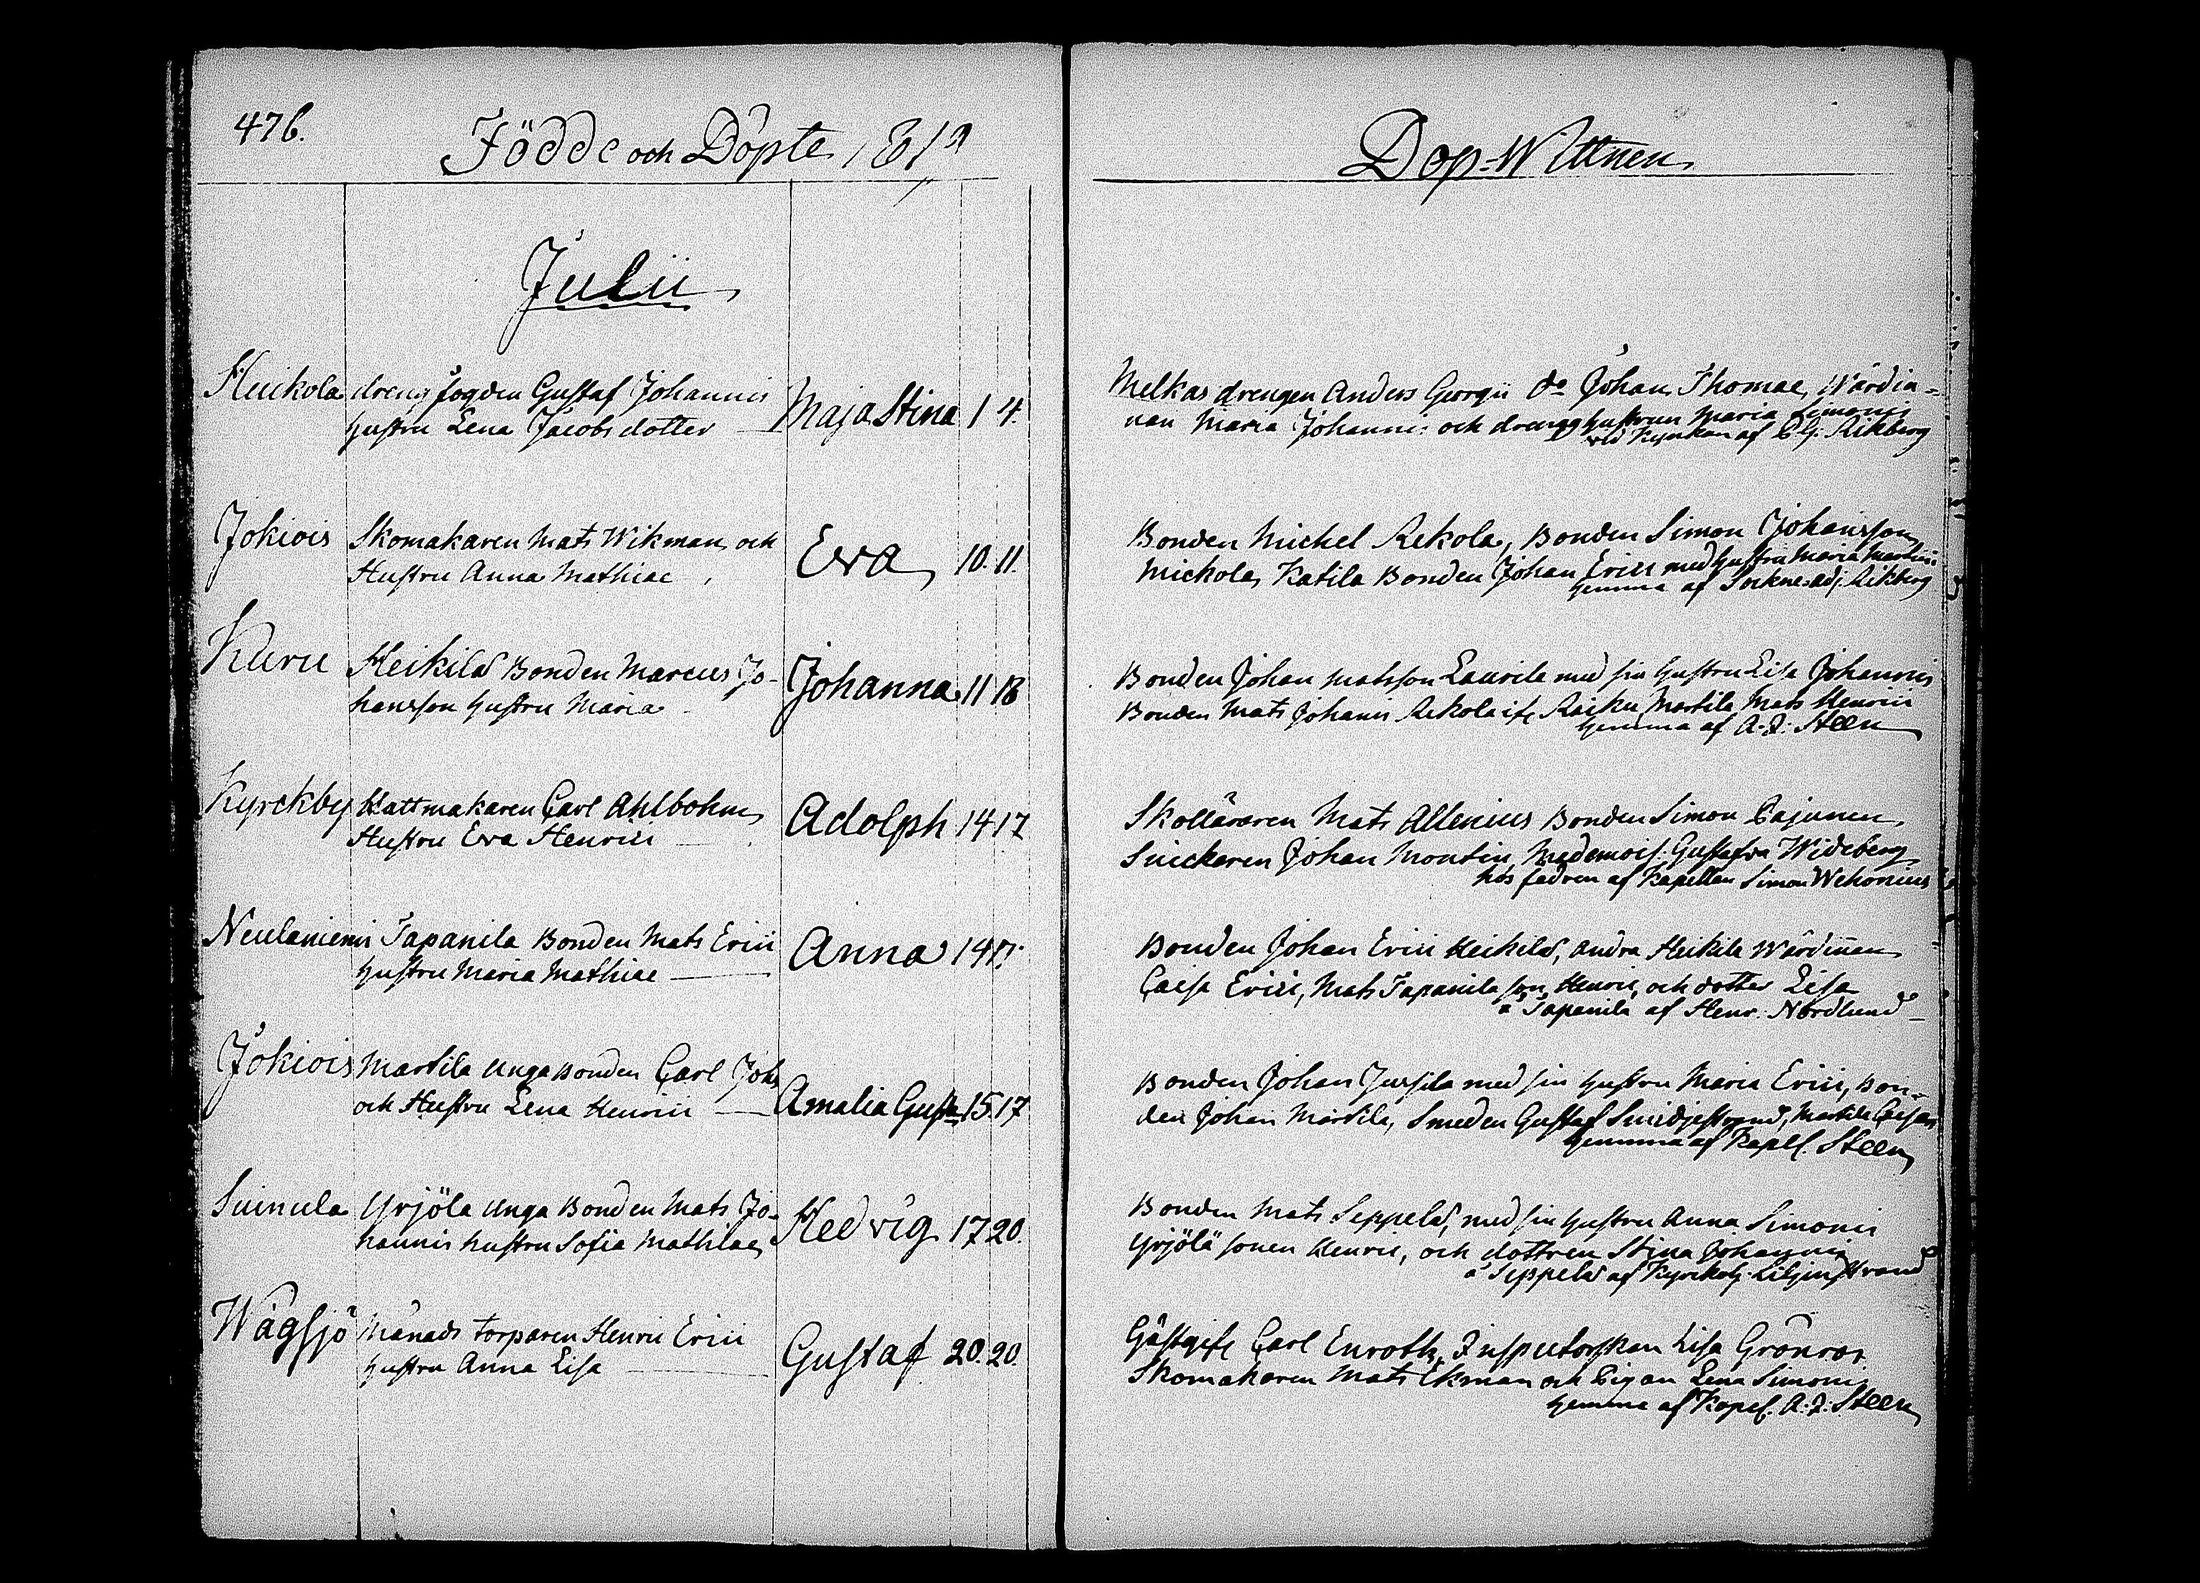 476.
Födde och Döpte 1819
Julii
Heikola drengfogden Gustaf Johannis Maja Stina 1 4.
hustru Lena Jacobs dotter
Jokiois Skomakaren Mats Wikman och Eva 10. 11.
Hustru Anna Mathiae
Kuru Heikilä Bonden Marcus Jo- Johanna 11 18
hansson hustru Maria
Kyrckby Hattmakaren Carl Ahlbohm Adolph 14 17
Hustru Eva Henrici
Neulaniemi Tapanila Bonden Mats Erici Anna 14
hustru Maria Mathiae
Jokiois Martila unga Bonden Carl Joh: Amalia Gust: 15 17
och Hustru Lena Henrici
Suinula Yrjölä unga Bonden Mats Jo- Hedvig 17 20.
hannis hustru Sofia Mathiae
Wägsjö Månads torparen Henric Erici Gustaf 20. 20.
hustru Anna Lisa
Dop-Wittnen
Melkas drengen Anders Georgii do Johan Thomae, Wärdin=
nan Maria Johanni: och drengghustrun Maria Simonis
vid Kyrkan af Rikberg
Bonden Michel Rekola, Bonden Simon Johansson
Mickola, Katila Bonden Johan Erici med hustru Maria Martini
hemma af Sockne adj: Rikberg
Bonden Johan Matsson Laurila med sin hustru Lisa Johannis
Bonden Mats Johanis Rekola Martila Mats Henrici
hemma af A. J. Steen
Skolläraren Mats Allenius Bonden Simon Pajunen
Snickaren Johan Montin, Mademois: Gustafva Wideberg
hos fadren af Kapellan Simon Wehonius
Bonden Johan Erici Heikilä, andra Heikile Wärdiñan
Caisa Erici, Mats Tapanila son Henric, och dotter Lisa
å Tapanila af Henr: Nordlund
Bonden Johan Jussila med sin hustru Maria Erici, Bon-
den Johan Martila, Smeden Gustaf Martila Caisa
hemma af Kapel. Steen
Bonden Mats Seppelä, med sin hustru Anna Simonis
Yrjölä sonen Henric, och dottren Stina Johannis
å Seppelä af Kyrckohj: Liljenstrand
Gästgifv Carl Enroth, Inspectorskan Lisa Grönros
Skomakaren Mats Ekman och Pigan Lena Simonis
hemma af Kapel. A. J. Steen